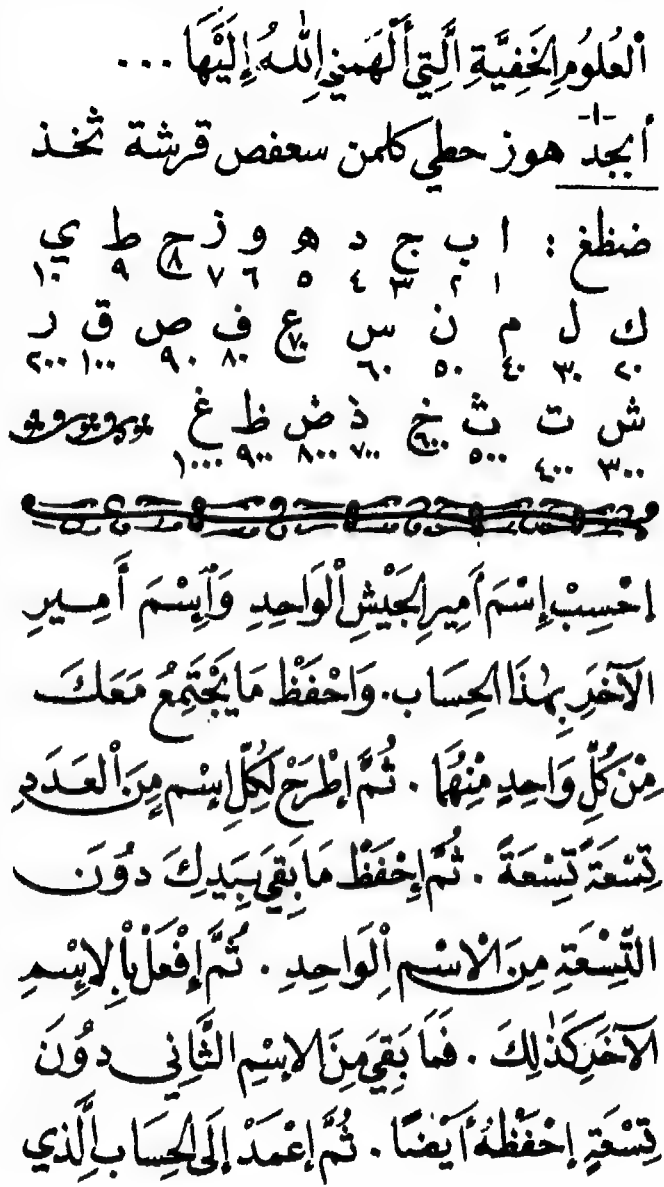 اَلْعُلُومِ الْخَفِيَّةِ الَّتِي أَلْهَمَنِي اللهُ إِلَيْهَا ...
-١-
أبجد هوز حطي كلمن سعفص قرشة ثخذ
ضظغ : ا ب ج د ه و ز ح ط ي
١ ٢ ٣ ٤ ٥ ٦ ٧ ٨ ٩ ١٠
ك ل م ن س ع ف ص ق ر
٢٠ ٣٠ ٤٠ ٥٠ ٦٠ ٧٠ ٨٠ ٩٠ ١٠٠ ٢٠٠
ش ت ث خ ذ ض ظ غ
٣٠٠ ٤٠٠ ٥٠٠ ٦٠٠ ٧٠٠ ٨٠٠ ٩٠٠ ١٠٠٠
اِحْسِبْ إِسْمَ أَمِيرِ الْجَيْشِ الْوَاحِدِ وَإِسْمَ أَمِيرِ
الْآخَرِ بِهٰذَا الْحِسَابِ. وَاحْفَظْ مَا يَجْتَمِعُ مَعَكَ
مِنْ كُلِّ وَاحِدٍ مِنْهُمَا . ثُمَّ إِطْرَحْ لِكُلِّ إِسْمٍ مِنَ الْعَدَدِ
تِسْعَةً تِسْعَةً . ثُمَّ إِحْفَظْ مَا بَقِيَ بِيَدِكَ دُونَ
التِّسْعَةِ مِنَ الْاسْمِ الْوَاحِدِ . ثُمَّ إِفْعَلْ بِالْإِسْمِ
الْآخَرِ كَذٰلِكَ . فَمَا بَقِيَ مِنَ الْإِسْمِ الثَّانِي دُونَ
تِسْعَةٍ إِحْفَظْهُ أَيْضًا . ثُمَّ إِعْمَدْ إِلَى الْحِسَابِ الَّذِي